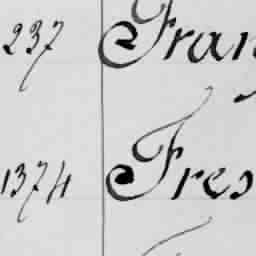 237 Fran
1374 Fres